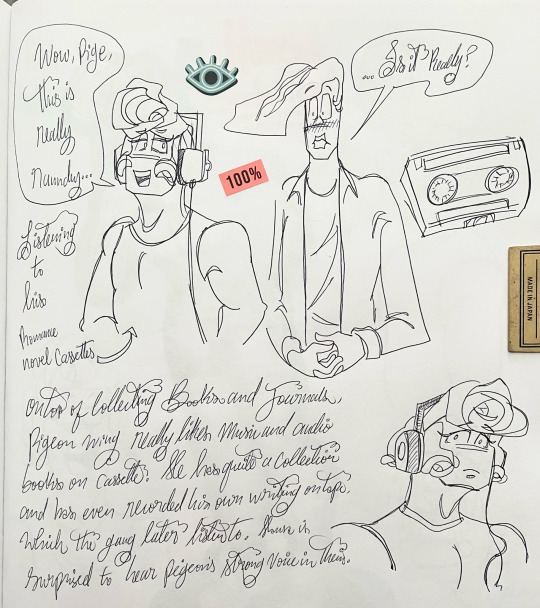 Wow, Pige,
this is
really
... Is it Really?
100%
MADE IN JAPAN
Listening
to
his
Romance
novel Cassettes
Ontop of Collecting Books and Journals,
Pigeon wing Really likes Music and audio
books on Cassette. He has quite a collection
and has even recorded his own writing on tape,
which the gang later listen to. is
surprised to hear Pigeon's strong voice in them.